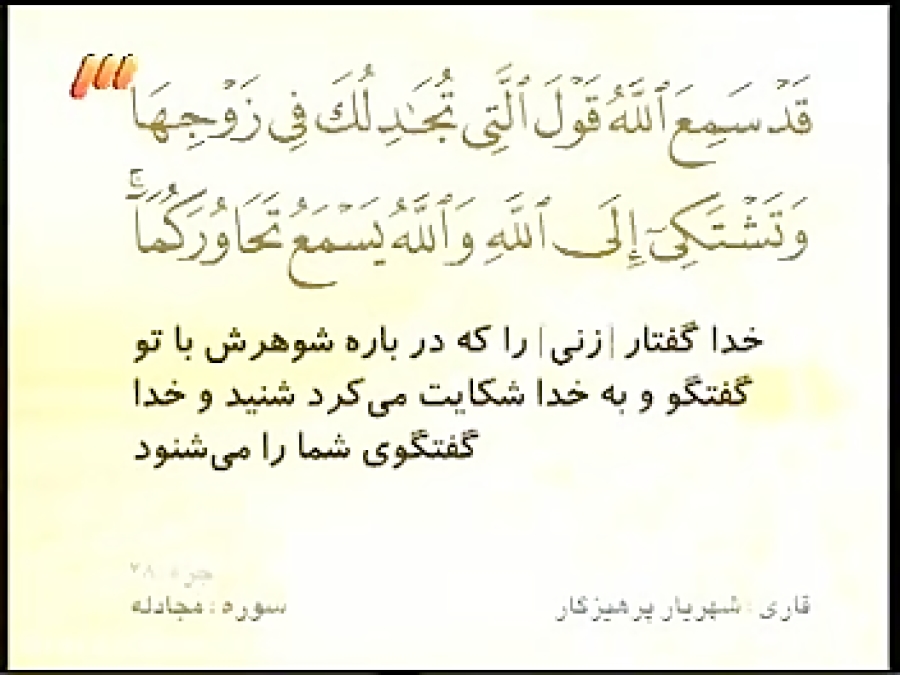 قَدْ سَمِعَ ٱللَّهُ قَوْلَ ٱلَّتِي تُجَٰدِلُكَ فِي زَوْجِهَا
وَتَشْتَكِيٓ إِلَى ٱللَّهِ وَٱللَّهُ يَسْمَعُ تَحَاوُرَكُمَآ ۚ
خدا گفتار [زنی] را که در باره شوهرش با تو
گفتگو و به خدا شکایت می‌کرد شنید و خدا
گفتگوی شما را می‌شنود
جزء : ۲۸
قاری : شهریار پرهیزکار سوره : مجادله